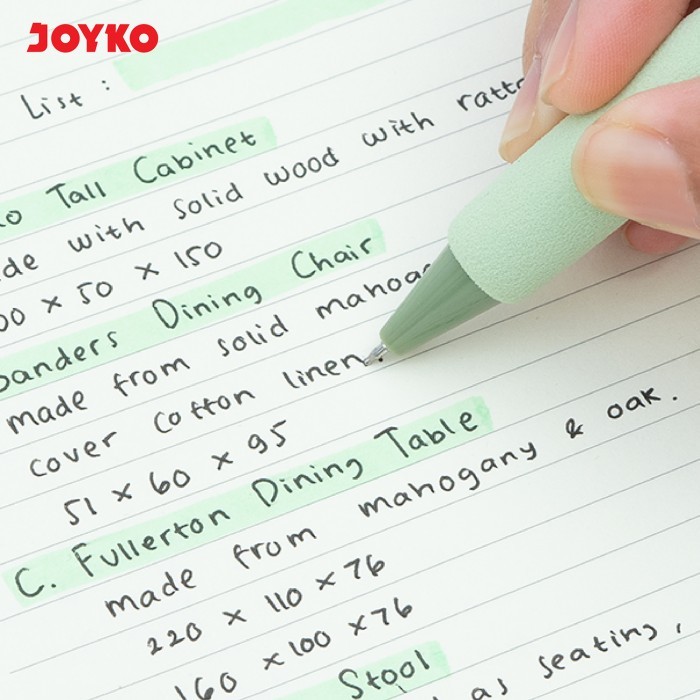 JOYKO
List :
Tall Cabinet
with solid wood with
50 x 150
Dining Chair
made from solid
cover cotton linen
51 x 60 x 95
C. Fullerton Dining Table
made from mahogany & oak.
220 x 110 x 76
160 x 100 x 76
Stool
as seating,